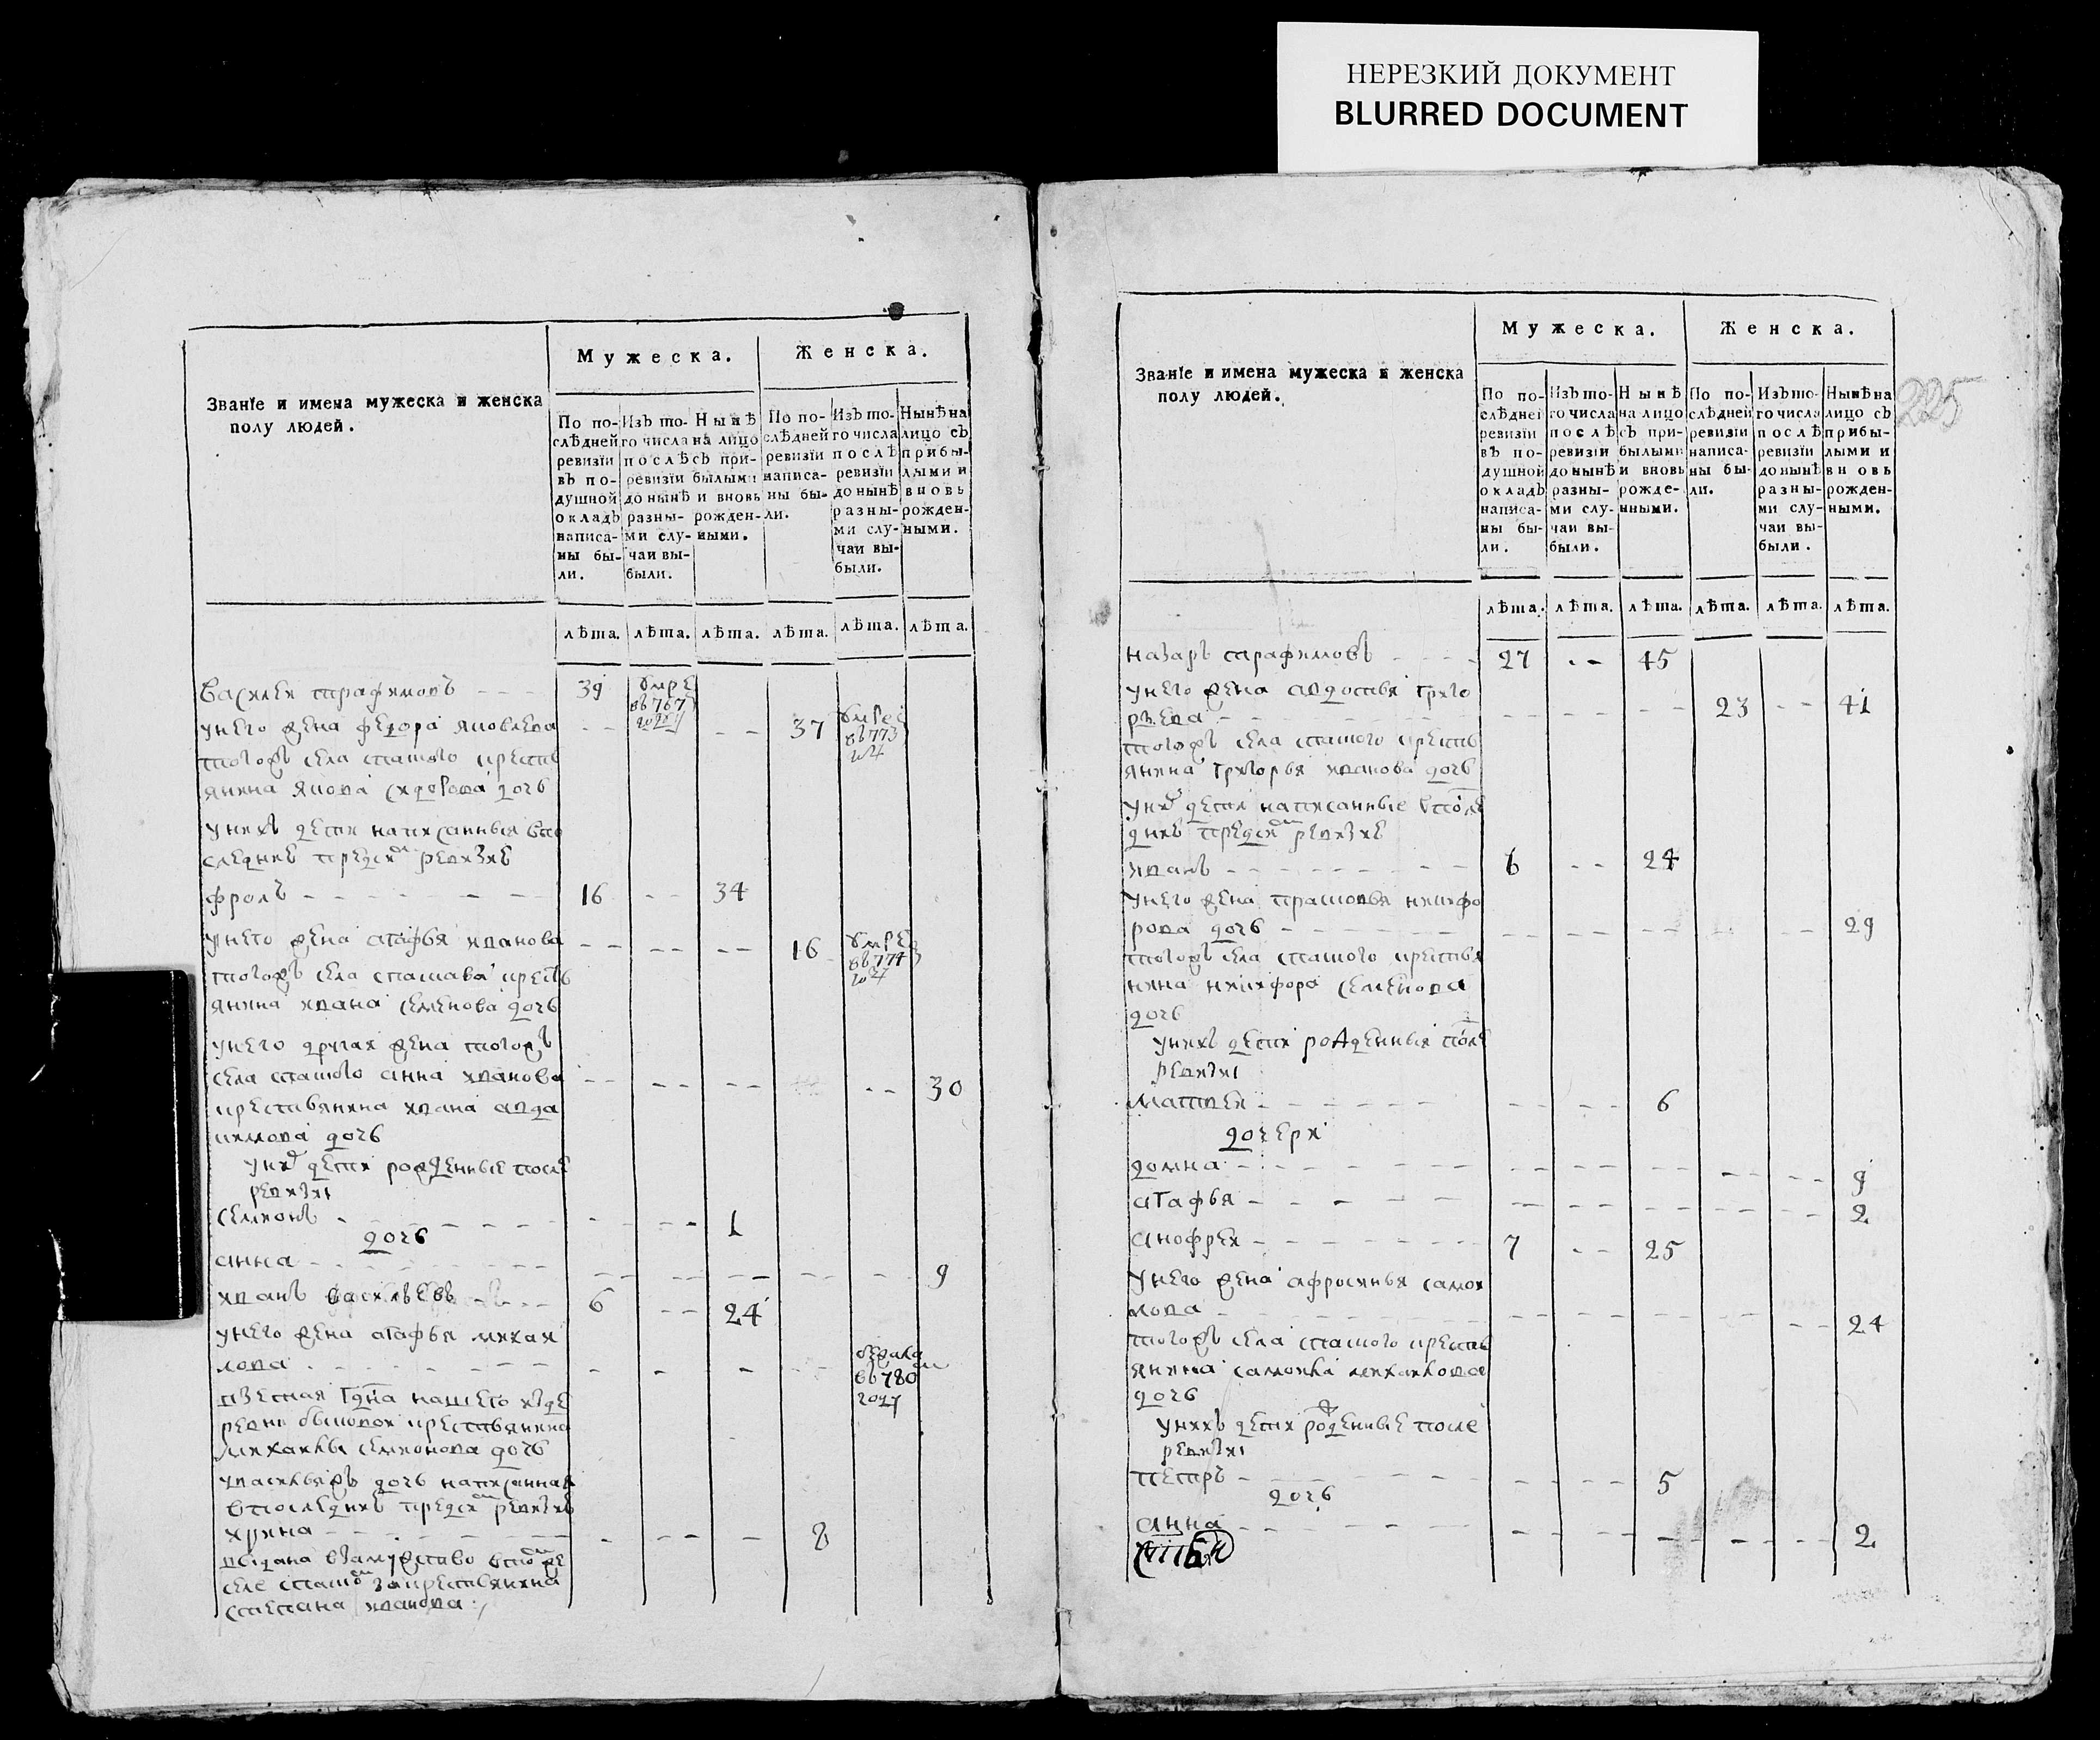 НЕРЕЗКИЙ ДОКУМЕНТ
BLURRED DOCUMENT
Званїе и имена мужеска и женска
полу людей.
Мужеска.
Женска.
По по-
слѣдней
ревизїи
въ по-
душной
окладъ
написа-
ны бы-
ли.
Изъ то-
го числа
послѣ
ревизїи
до нынѣ
разны-
ми слу-
чаи вы-
были.
Нынѣ
на лицо
съ при-
былыми
и вновь
рожден-
ными.
По по-
слѣдней
ревизїи
написа-
ны бы-
ли.
Изъ то-
го числа
послѣ
ревизїи
до нынѣ
разны-
ми слу-
чаи вы-
были.
Нынѣ на
лицо съ
прибы-
лыми и
вновь
рожден-
ными.
лѣта. лѣта. лѣта. лѣта. лѣта. лѣта.
василеи трафимовъ 39 умре
въ 767
году
унего жена федора яковлева 37 умре
въ 773
году
тогожъ села спаского кресть
янина якова сидорова дочь
унихъ дети написанныя впо
следней пред сим ревизиѣ
фролъ 16 34
унего жена агафья иванова 16 умре
въ 774
году
тогожъ села спаскава кресть
янина ивана семенова дочь
унего другая жена тогожъ
села спаского анна иванова 30
крестьянина ивана авда
кимова дочь
уних дети рожденные после
ревизиі
семионъ 1
дочь
анна 9
иванъ васильевъ 6 24
унего жена агафья михаи
лова бежала
въ 780
году
взетая гдна нашего изъ де
ревни крестьянина
михаилы семионова дочь
увасильяжъ дочь написанная
впоследней пред сим ревизиѣ
ирина 8
выдана взамужство втом же
селе спаском за крестьянина
степана иванова
225
Званїе и имена мужеска и женска
полу людей.
Мужеска.
Женска.
По по-
слѣдней
ревизїи
въ по-
душной
окладъ
написа-
ны бы-
ли.
Изъ то-
го числа
послѣ
ревизїи
до нынѣ
разны-
ми слу-
чаи вы-
были.
Нынѣ
на лицо
съ при-
былыми
и вновь
рожде-
нными.
По по-
слѣдней
ревизїи
написа-
ны бы-
ли.
Изъ то-
го числа
послѣ
ревизїи
до нынѣ
разны-
ми слу-
чаи вы-
были.
Нынѣ на
лицо съ
прибы-
лыми и
вновь
рожден-
ными.
лѣта. лѣта. лѣта. лѣта. лѣта. лѣта.
назаръ трафимовъ 27 45
унего жена авдотья григо
рьева 23 41
тогожъ села спаского кресть
янина григорья иванова дочь
уних дети написанные впосле
дней пред сим ревизиѣ
иванъ 6 24
унего жена прасковья никифо
рова дочь 29
тогожъ села спаского крестья
нина никифора семенова
дочь
унихъ дети рожденныя после
ревизиі
матвеи 6
дочери
домна 9
агафья 2
анофреи 7 25
унего жена афросинья самои
лова 24
тогожъ села спаского кресть
янина самоила михаилова
дочь
унихъ дети рожденные после
ревизиі
петръ 5
дочь
анна 2